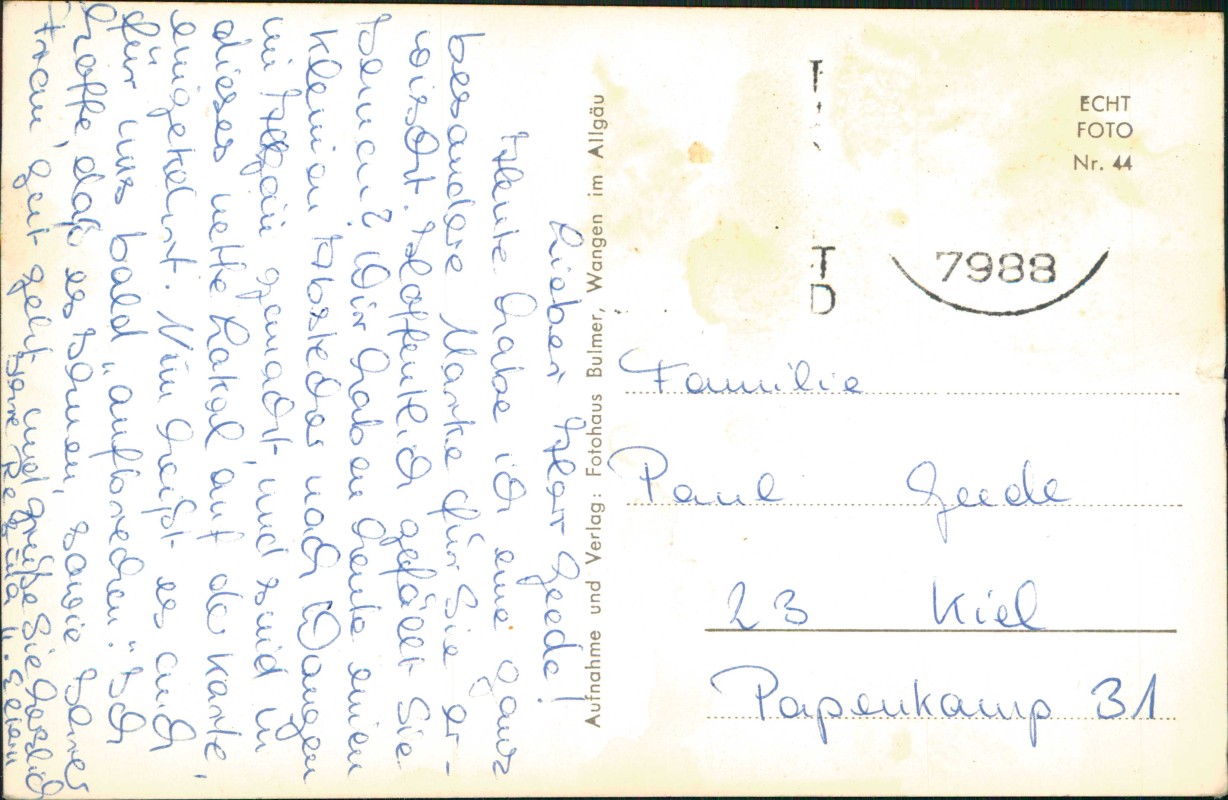 Lieber Herr Geede!
Heute habe ich eine ganz
besondere Marke für Sie er-
wischt. Hoffentlich gefällt Sie
Ihnen? Wir haben heute einen
kleinen Abstecher nach Wangen
im Allgäu gemacht, und sind in
dieses nette Lokal auf der Karte,
eingekehrt. Nun heißt es auch
für uns bald „aufbrechen“. Ich
hoffe, daß es Ihnen, sowie Ihrer
Frau, gut geht und grüße Sie herzlich
Ihre Regina u. Eltern
Aufnahme und Verlag: Fotohaus Bulmer, Wangen im Allgäu
ECHT
FOTO
Nr. 44
T
D
7988
Familie
Paul Geede
23 Kiel
Papenkamp 31